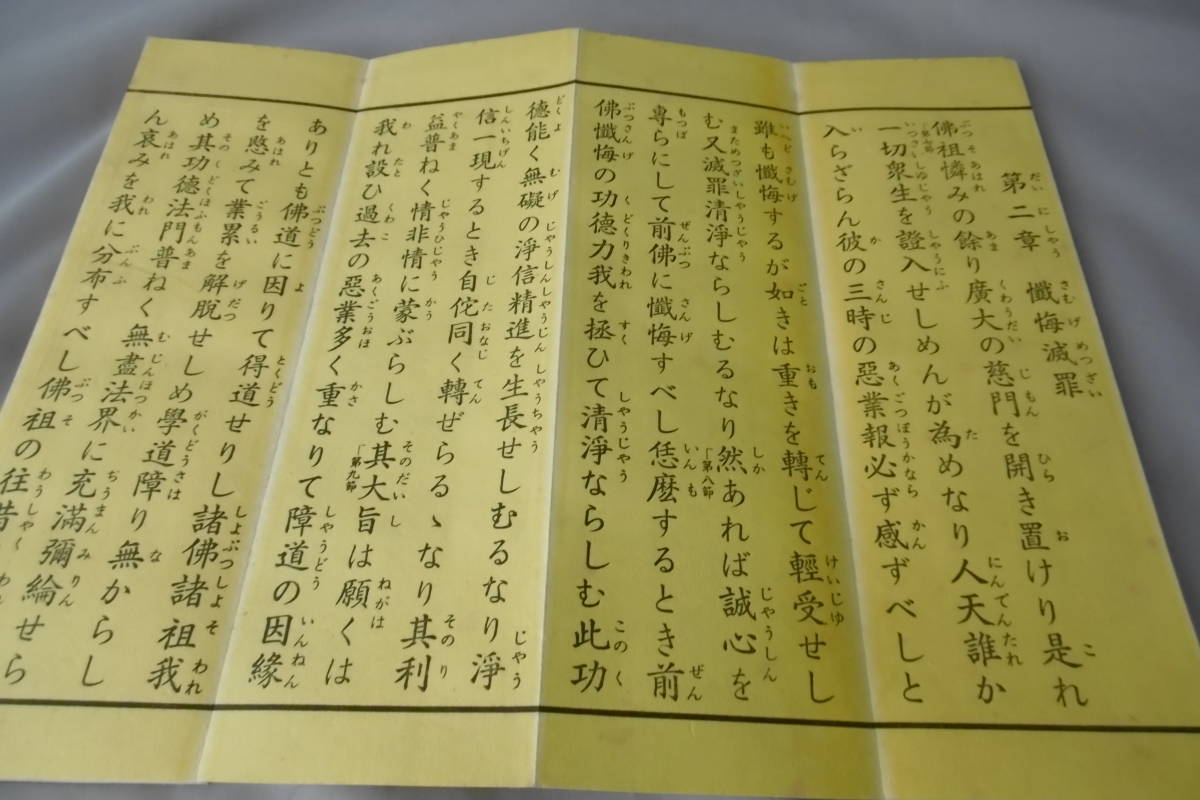 第二章　懺悔滅罪
佛祖憐みの餘り廣大の慈門を開き置けり是れ
一切衆生を證入せしめんが為めなり人天誰か
入らざらん彼の三時の惡業報必ず感ずべしと
雖も懺悔するが如きは重きを轉じて輕受せし
む又滅罪清淨ならしむるなり然あれば誠心を
専らにして前佛に懺悔すべし恁麼するとき前
佛懺悔の功德力我を拯ひて清淨ならしむ此功
德能く無礙の淨信精進を生長せしむるなり淨
信一現するとき自佗同く轉ぜらるゝなり其利
益普ねく情非情に蒙ぶらしむ其大旨は願くは
我れ設ひ過去の惡業多く重なりて障道の因緣
ありとも佛道に因りて得道せりし諸佛諸祖我
を愍みて業累を解脱せしめ學道障り無からし
め其功德法門普ねく無盡法界に充滿彌綸せら
ん哀みを我に分布すべし佛祖の往昔